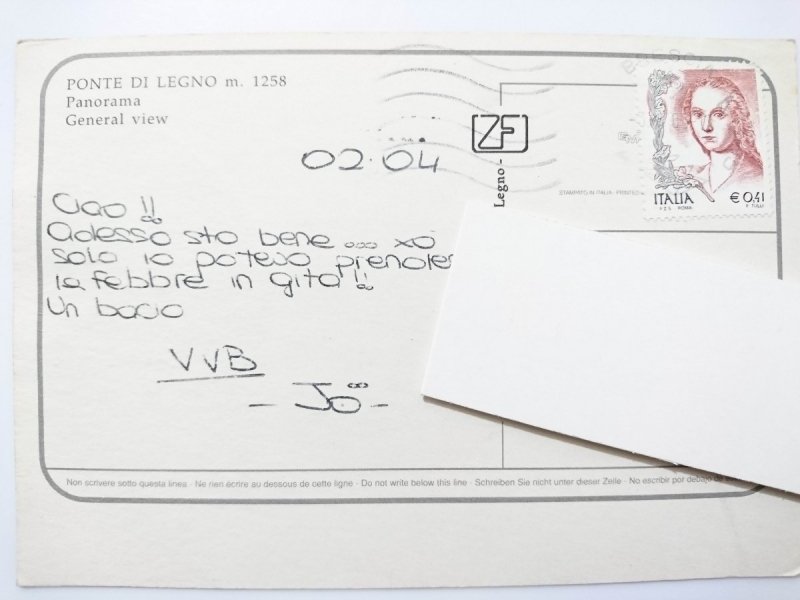 PONTE DI LEGNO m. 1258
Panorama
General view
02.04
Ciao!!
adesso sto bene... xò
solo io potevo prender
la febbre in gita!!
Un bacio
VVB
- Jö -
ZF
Legno -
STAMPATO IN ITALIA - PRINTED
ITALIA
€ 0,41
I.P.Z.S. ROMA
R. TULLI
Non scrivere sotto questa linea - Ne rien écrire au dessous de cette ligne - Do not write below this line - Schreiben Sie nicht unter dieser Zeile - No escribir por debajo de